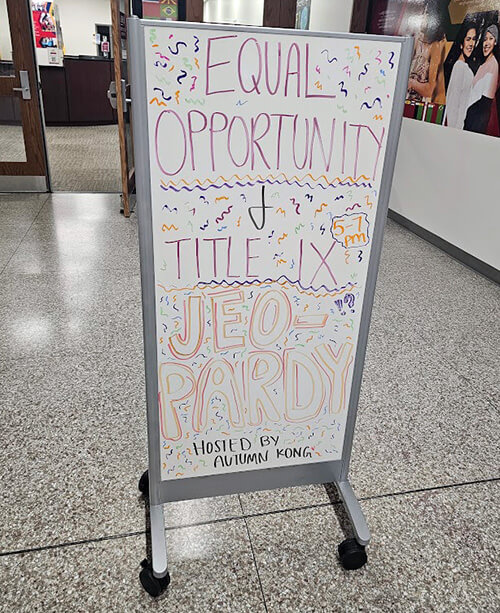 EQUAL
OPPORTUNITY
&
TITLE IX
5-7
pm
JEO-
PARDY
HOSTED BY
AUTUMN KONG